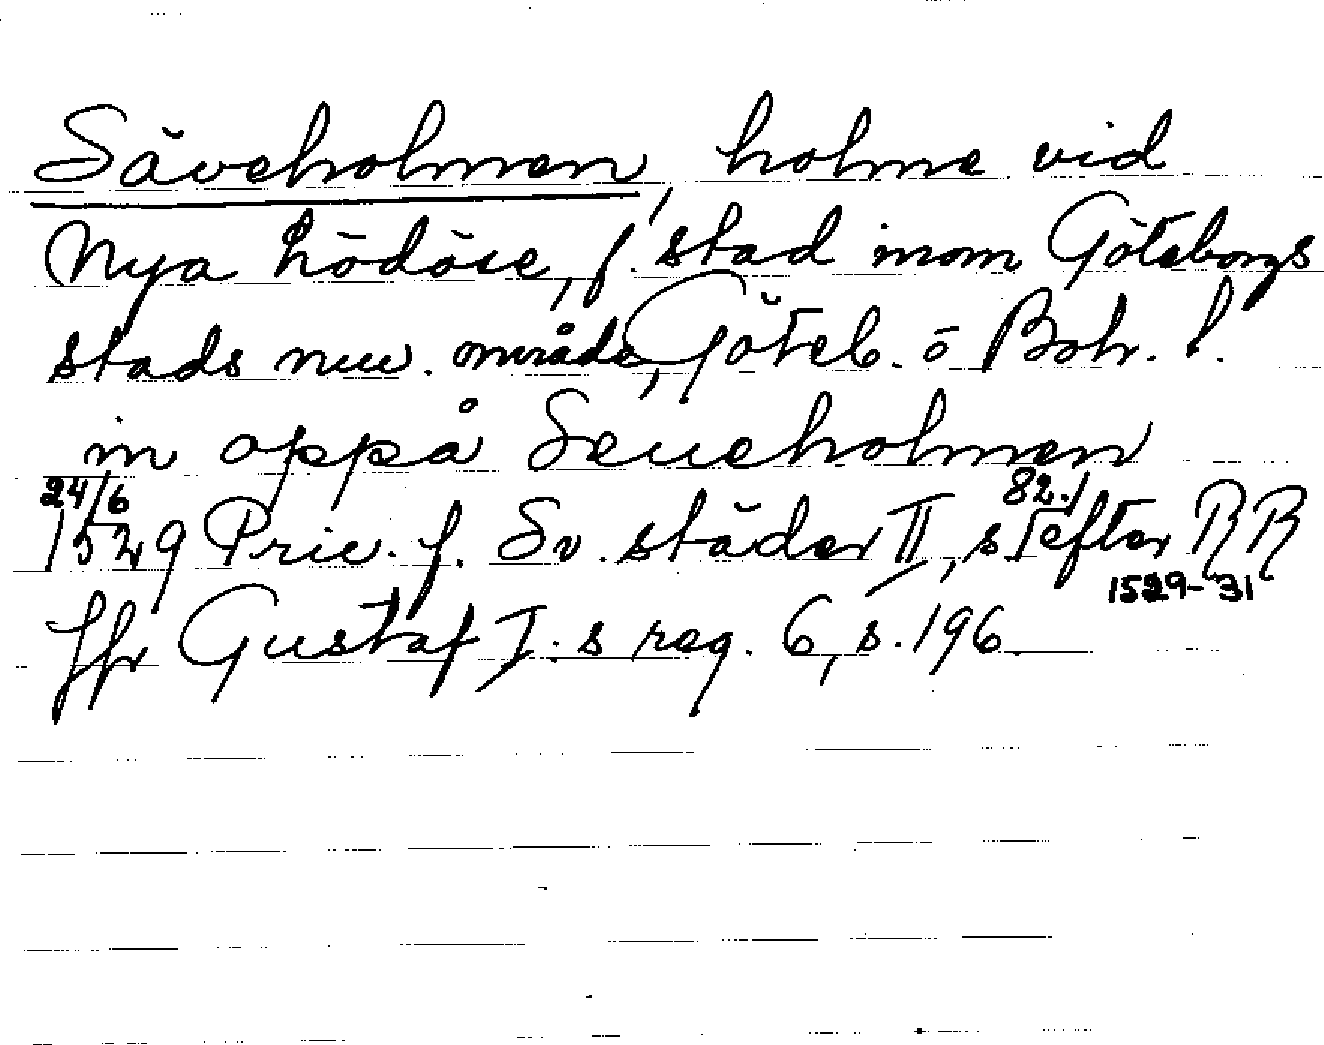 Säveholmen, holme vid
Nya Lödöse, f. stad inom Göteborgs
stads nuv. område, Göteb. o Boh. l.
in oppå Seueholmen
24/6 1529 Priv. f. Sv. städer II, s 82. efter RR 1529-31
Jfr Gustaf I:s reg. 6, s. 196